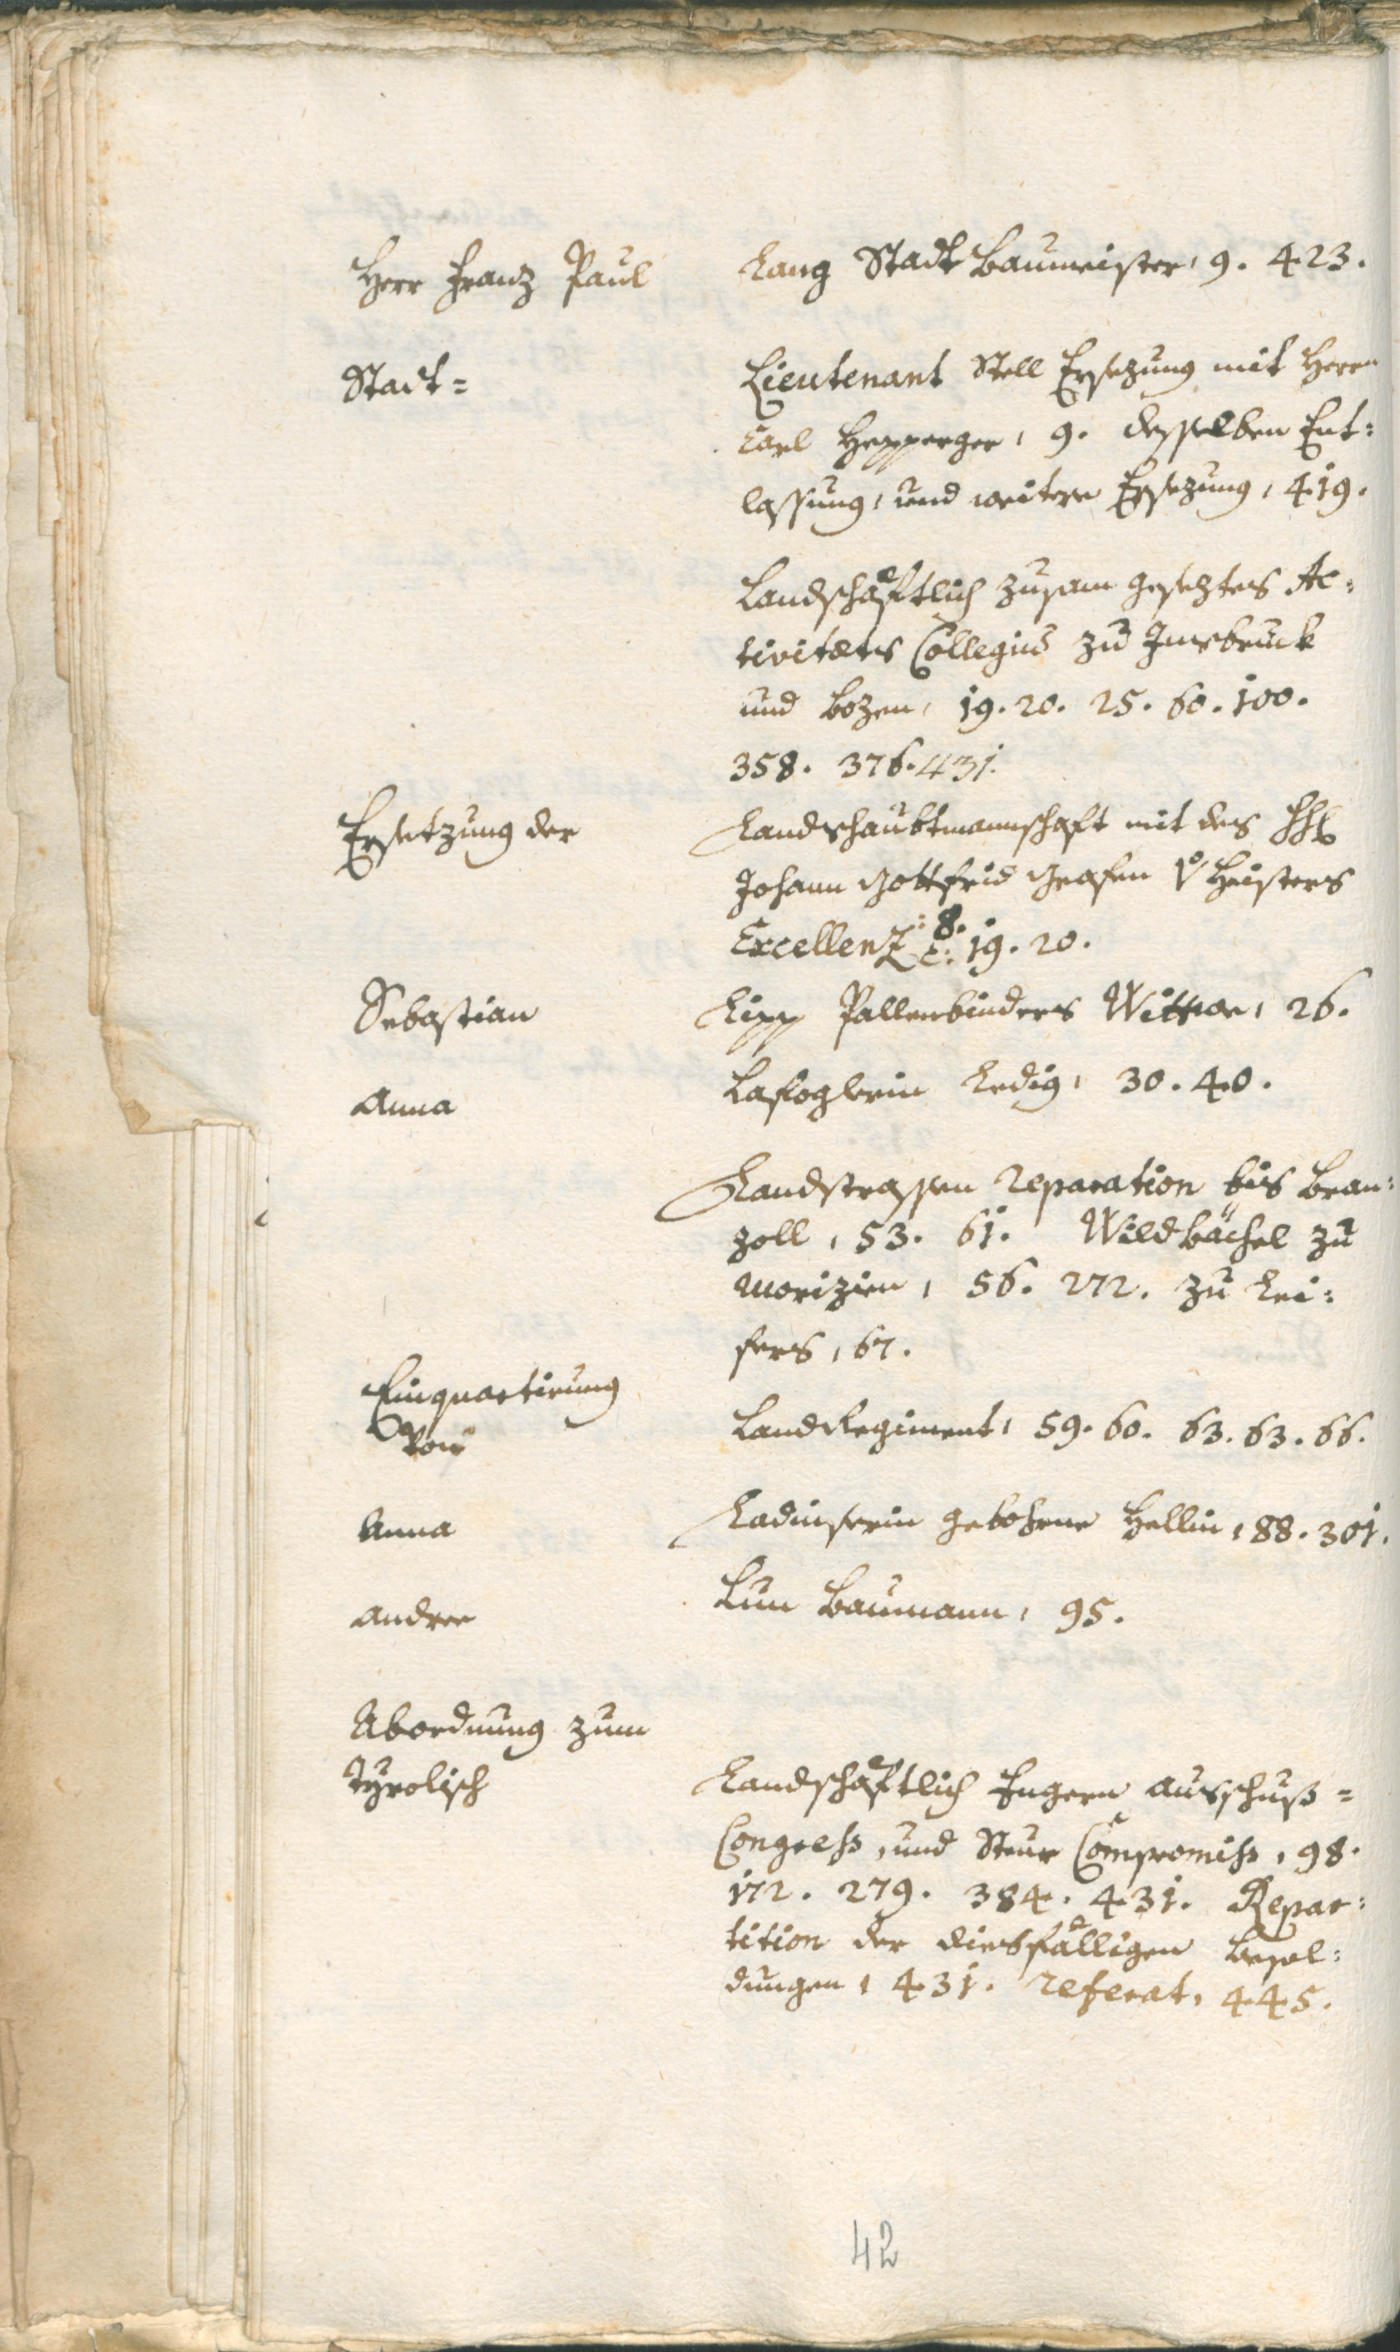 Herr Franz Paul Lang Stadt Baumeister, 9. 423.
Stadt= Lieutenant Stell Ersezung mit Herrn
Carl Hepperger, 9. desselben Ent=
lassung, und weitere Ersezung, 419.
Landschäftlich zusam geseztes Ac=
tivitets Collegium zu Innsbruck
und Bozen, 19. 20. 25. 60. 100.
358. 376. 431.
Ersetzung der Landshaubtmannschaft mit des
Johann Gottfrid Grafen v Heisters
Excellenz 8. 19. 20.
Sebastian Lipp Pallenbinders Wittwe, 26.
Anna Lafoglerin Ledig, 30. 40.
Landstrassen reparation bis Bran=
zoll, 53. 61. Wildbächel zu
Morizien, 56. 272. zu Lei=
fers, 67.
Einquartirung
Von Land Regiment, 59. 60. 63. 63. 66.
Anna Ladinserin gebohrne Hellin, 88. 301.
Andree Lun Baumann, 95.
Abordnung zum
Tyrolisch Landschäftlich Engern Ausschuß=
Congress, und Steur Compromiss, 98.
172. 279. 384. 431. Repar=
tition der diesfälligen besol=
dungen, 431. referat, 445.
42